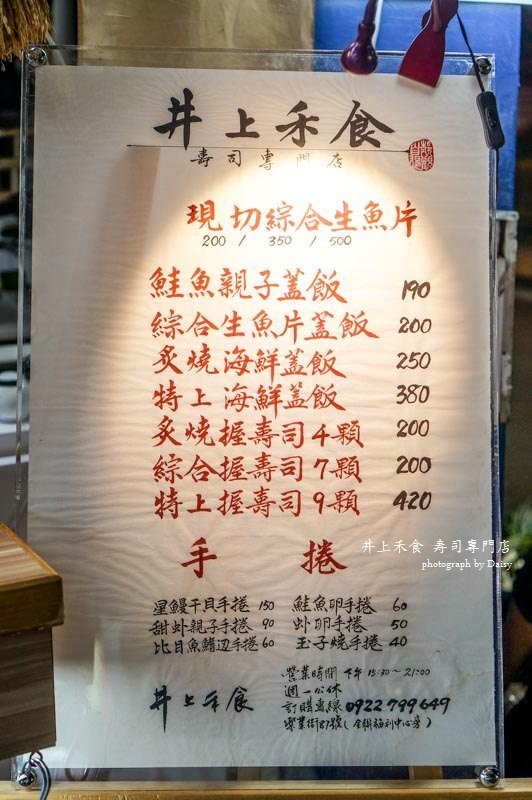 井上禾食
壽司專門店
現切綜合生魚片
200 / 350 / 500
鮭魚親子蓋飯 190
綜合生魚片蓋飯 200
炙燒海鮮蓋飯 250
特上海鮮蓋飯 380
炙燒握壽司4顆 200
綜合握壽司7顆 200
特上握壽司9顆 420
手捲
星鰻干貝手捲 150
甜蚪親子手捲 90
比目魚鰭边手捲 60
鮭魚卵手捲 60
蚪卵手捲 50
玉子燒手捲 40
營業時間 下午 15:30~21:00
週一公休
訂購專線 0922799649
專業街87號(全聯福利中心旁)
井上禾食
井上禾食 壽司專門店
photograph by Daisy